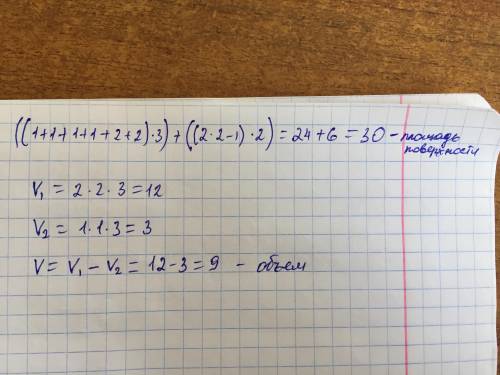 ((1+1+1+1+2+2)·3)+((2·2-1)·2)=24+6=30 - площадь
поверхности
V₁ = 2·2·3=12
V₂ = 1·1·3=3
V= V₁ - V₂ = 12-3=9 - объем